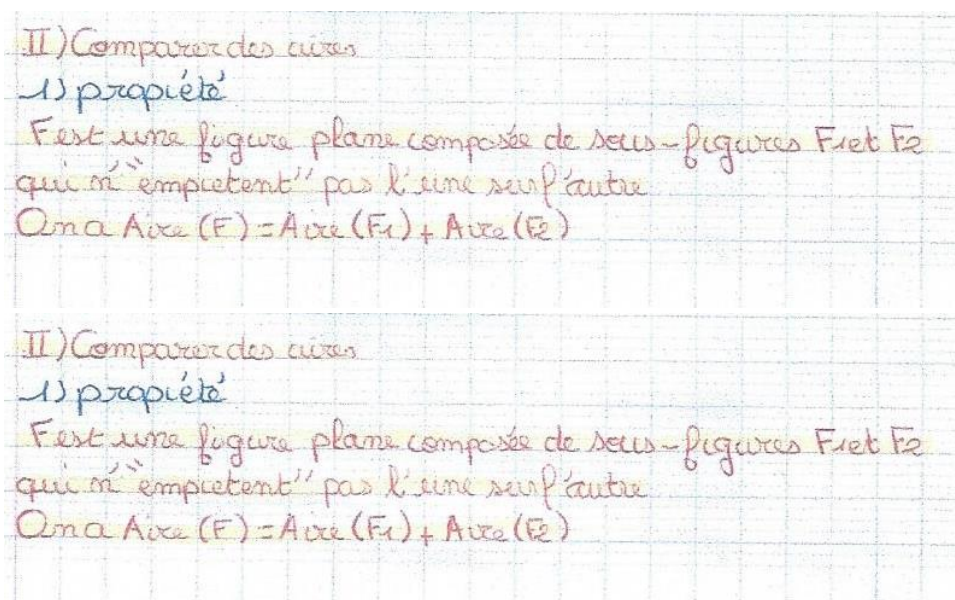 II) Comparer des aires
1) propiété
F est une figure plane composée de sous-figures F1 et F2
qui n'"empietent" pas l'une sur l'autre
On a Aire (F) = Aire (F1) + Aire (F2)
II) Comparer des aires
1) propiété
F est une figure plane composée de sous-figures F1 et F2
qui n'"empietent" pas l'une sur l'autre
On a Aire (F) = Aire (F1) + Aire (F2)